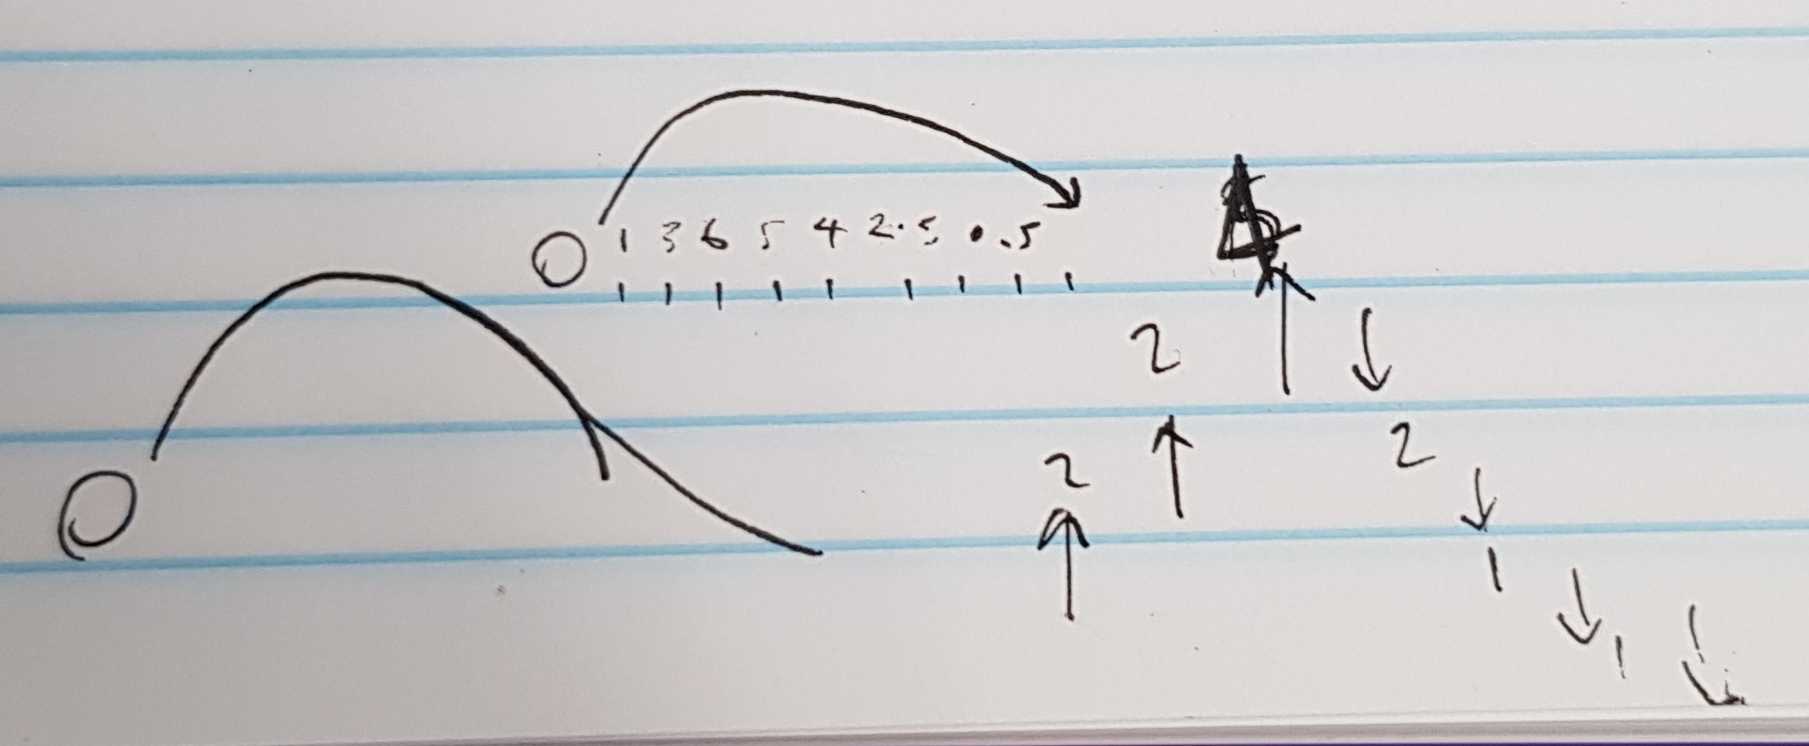 0 1 3 6 5 4 2.5 0.5
2
2 2
1
1